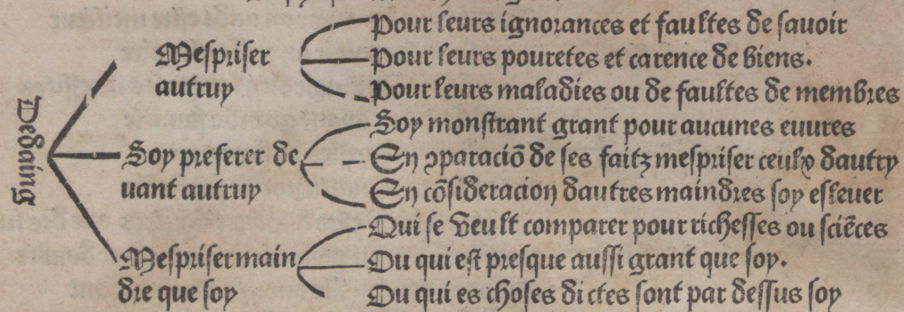 Desdaing
Mespriser
autruy
Pour leurs ignorances et faultes de sauoir
Pour leurs pouretes et carence de biens.
Pour leurs maladies ou de faultes de membres
Soy preferer de
uant autruy
Soy monstrant grant pour aucunes euures
En ꝯparaciõ de ses faitz mespriser ceulx dautry
En cõsideracion dautres maindres soy esleuer
Mespriser main
dre que soy
Qui se veult comparer pour richesses ou sciẽces
Ou qui est presque aussi grant que soy.
Ou qui es choses dictes sont par dessus soy